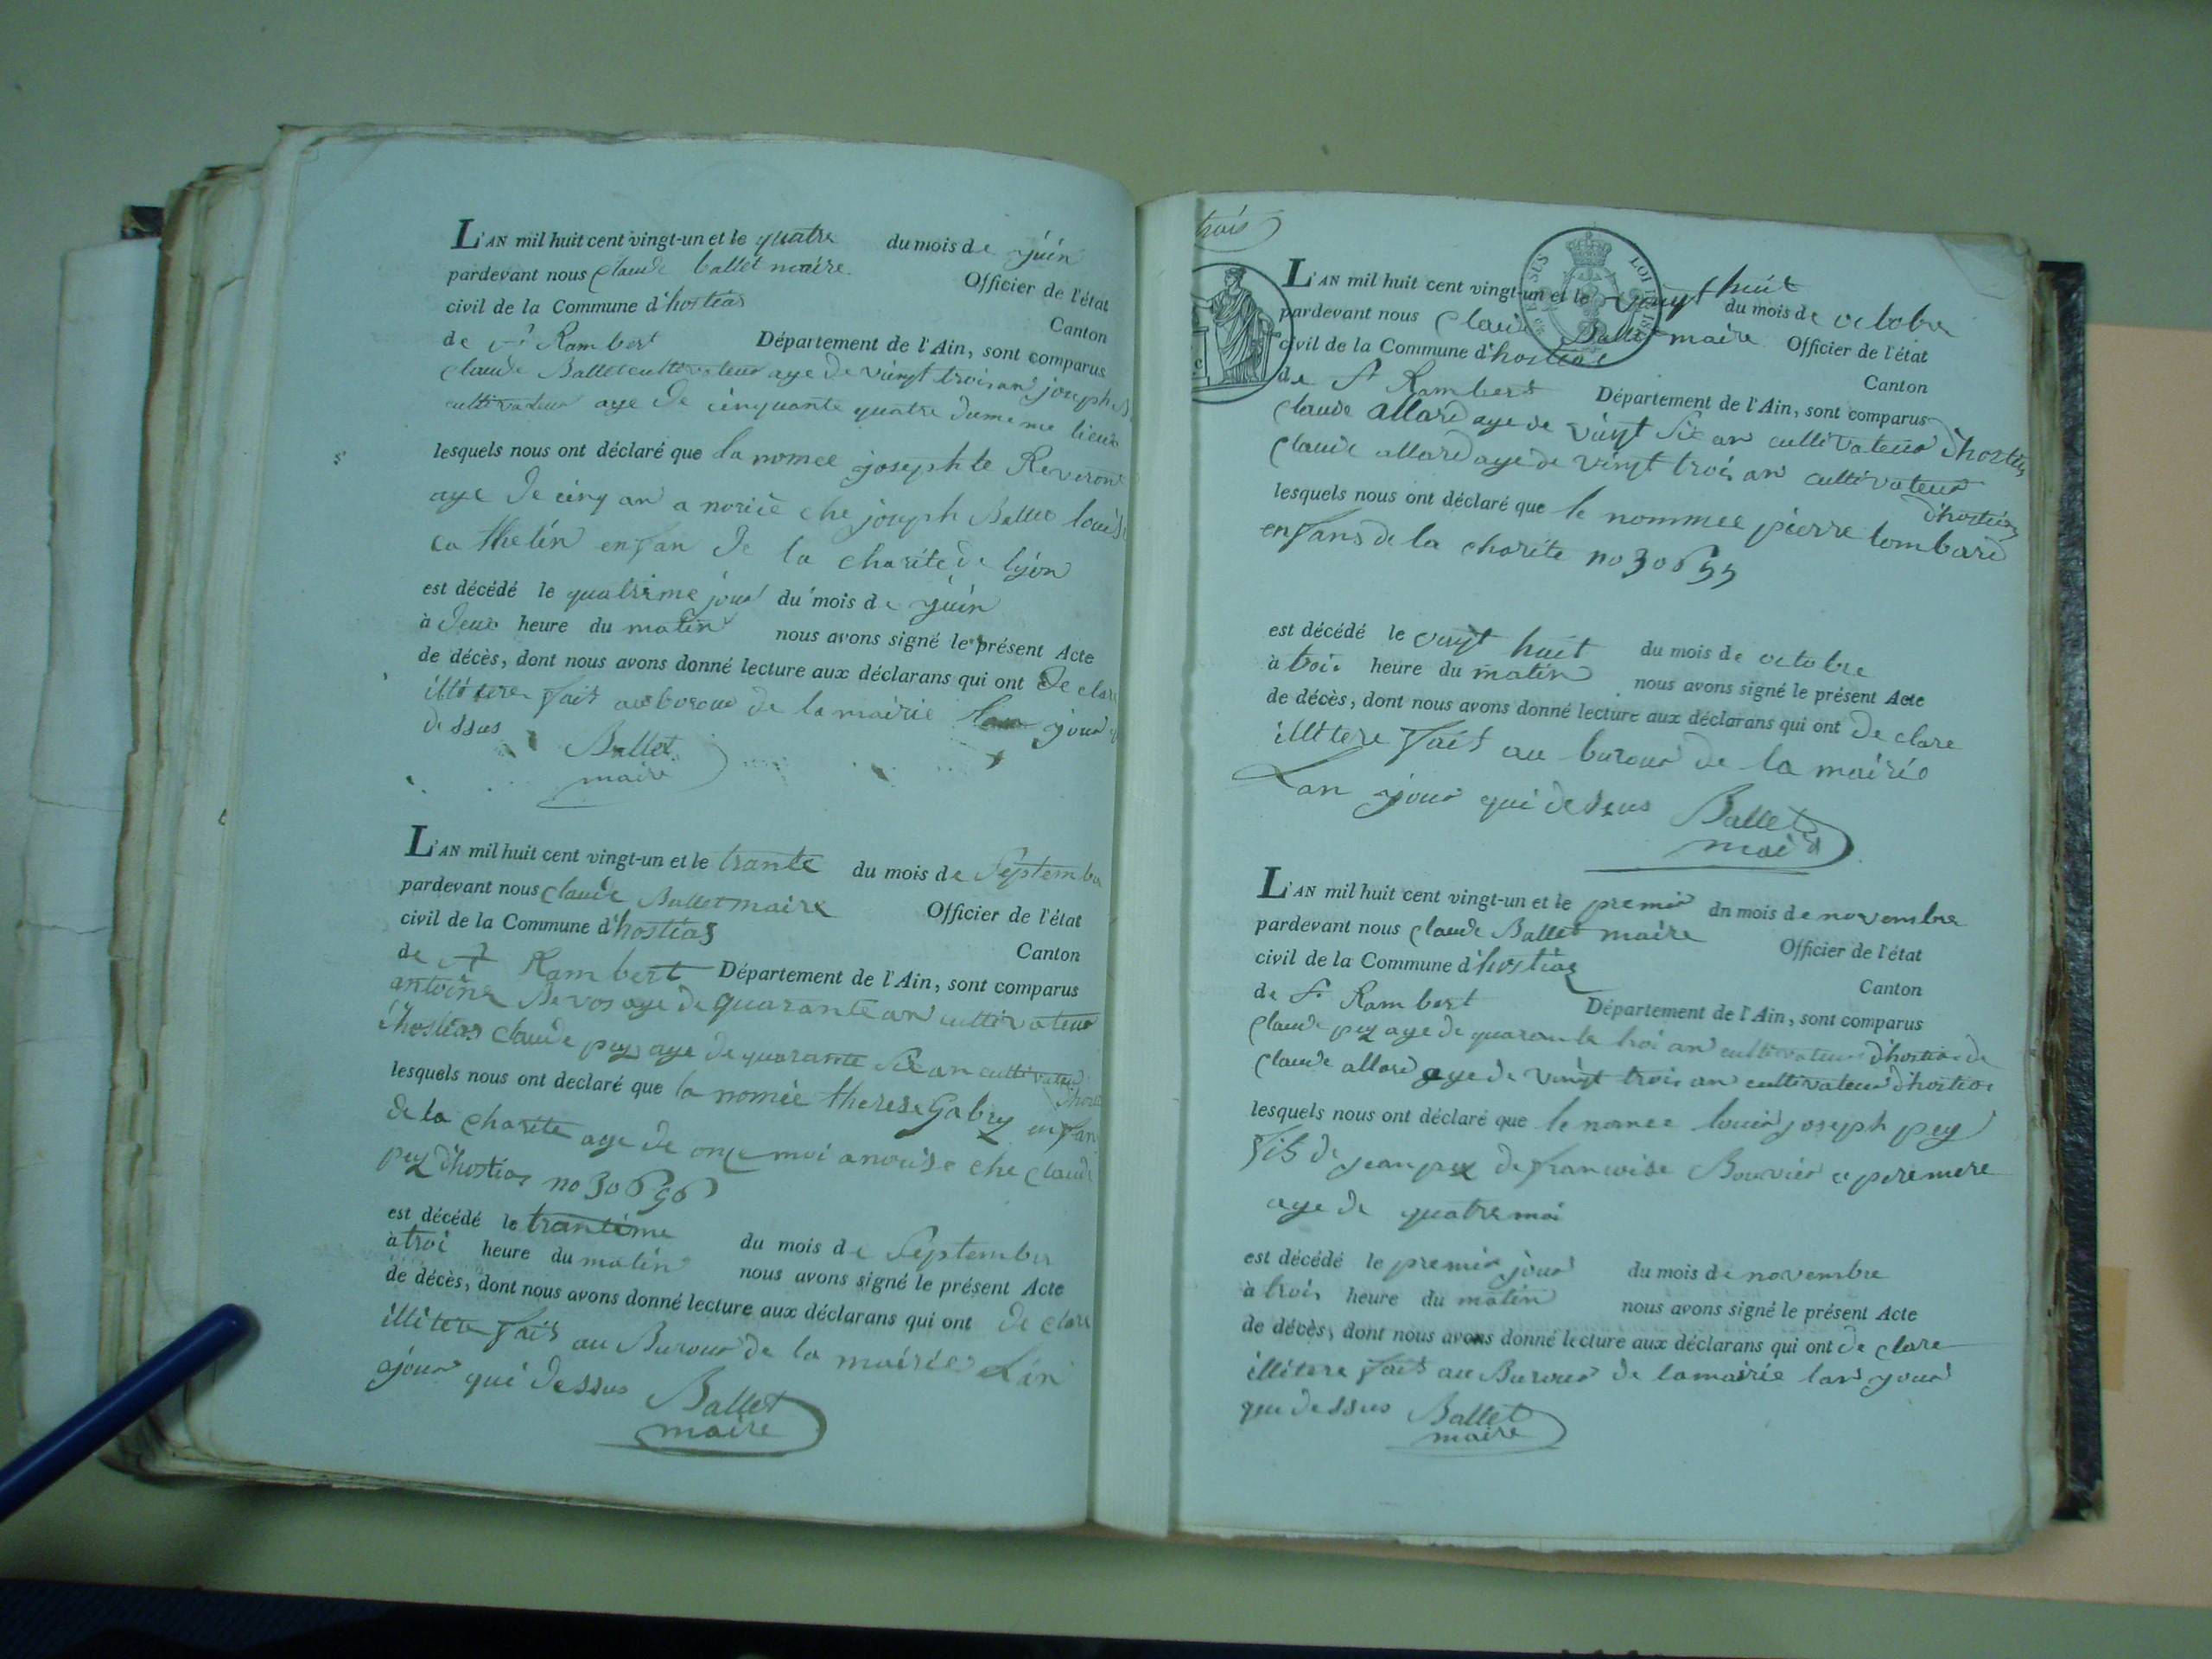 L'AN mil huit cent vingt-un et le quatre du mois de juin
pardevant nous claude ballet maire Officier de l'état
civil de la Commune d'hostias Canton
de St Rambert Département de l'Ain, sont comparus
claude Ballet cultivateur age de vingt troi an joseph
cultivateur age de cinquante quatre du meme lieux
lesquels nous ont déclaré que la nomee josephte Reveron
age de cinq an a noricé che joseph Ballet louise
cathelin enfan de la charite de lyon
est décédé le quatrime jour du mois de juin
à deux heure du matin nous avons signé le présent Acte
de décès, dont nous avons donné lecture aux déclarans qui ont de clare
illitere fait au buroux de la mairie jour
dessus Ballet
maire
L'AN mil huit cent vingt-un et le trante du mois de Septembre
pardevant nous claude Ballet maire Officier de l'état
civil de la Commune d'hostias Canton
de St Rambert Département de l'Ain, sont comparus
antoine age de quarante an cultivateur
d'hostias claude pey age de quarante Six an cultivateur
d'hostias
lesquels nous ont declaré que la nomée therese Gabry enfan
de la charite age de onze moi a nourise che claude
pey d'hostias no 30696
est décédé le trantime du mois de Septembre
à troi heure du matin nous avons signé le présent Acte
de décès, dont nous avons donné lecture aux déclarans qui ont de clare
illitere fait au Buroux de la mairie Lan
ajour qui dessus Ballet
maire
trois
L'AN mil huit cent vingt-un et le vingt huit du mois de octobre
pardevant nous Claude Ballet maire Officier de l'état
civil de la Commune d'hostias Canton
de St Rambert Département de l'Ain, sont comparus
claude allard age de vingt Six an cultivateur d'hostias
claude allard age de vingt trois an cultivateur
d'hostias
lesquels nous ont déclaré que le nommee pierre lombard
enfans de la charite no 30655
est décédé le vingt huit du mois de octobre
à trois heure du matin nous avons signé le présent Acte
de décès, dont nous avons donné lecture aux déclarans qui ont de clare
illitere fait au buroux de la mairie
Lan ajour qui desus Ballet
maire
L'AN mil huit cent vingt-un et le premier du mois de novembre
pardevant nous claude Ballet maire Officier de l'état
civil de la Commune d'hostias Canton
de St Rambert Département de l'Ain, sont comparus
claude pey age de quarante troi an cultivateur d'hostias de
claude allard age de vingt trois an cultivateur d'hostias
lesquels nous ont déclaré que le nomee louis joseph pey
fils de jean pey de francoise Bouvier ce pere mere
age de quatre moi
est décédé le premier jour du mois de novembre
à trois heure du matin nous avons signé le présent Acte
de décès, dont nous avons donné lecture aux déclarans qui ont de clare
illitere fait au Buroux de la mairie lan jour
que dessus Ballet
maire